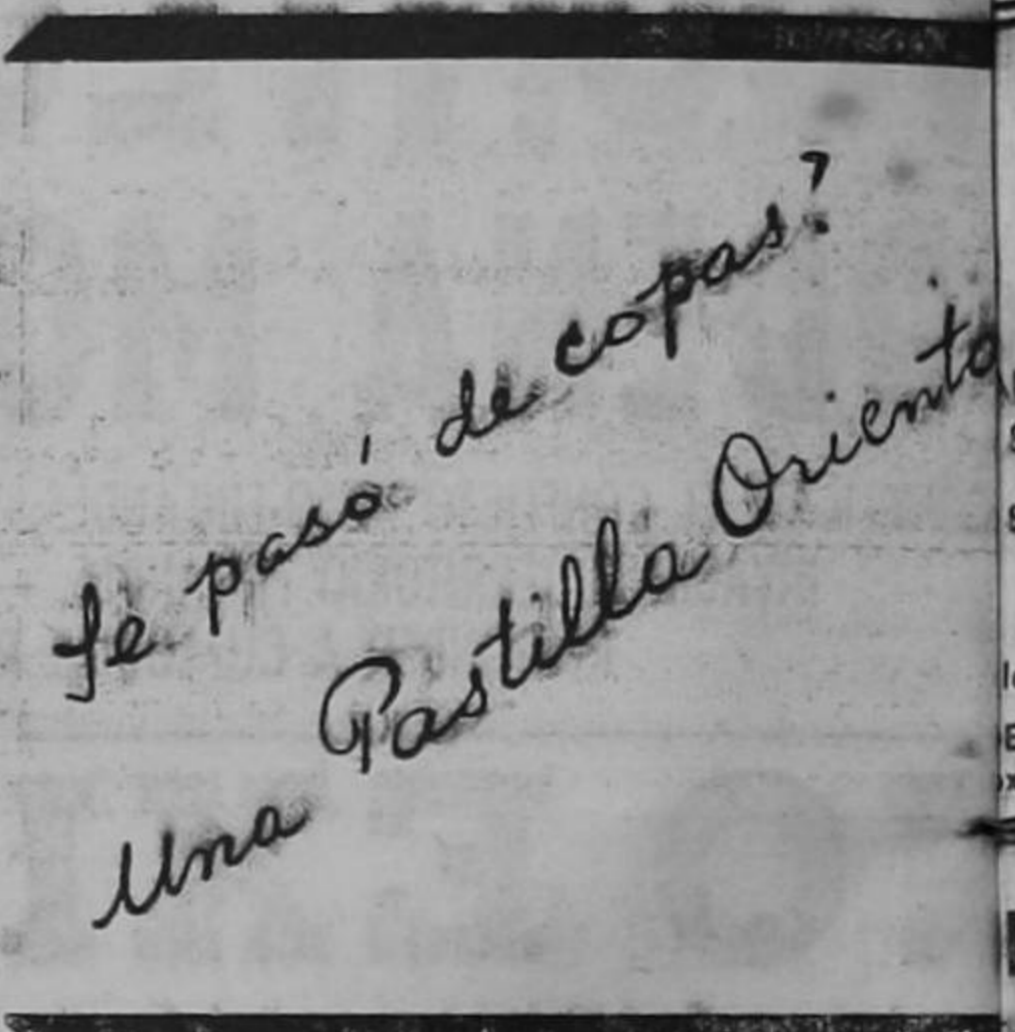 Se pasó de copas?
Una Pastilla Orienta